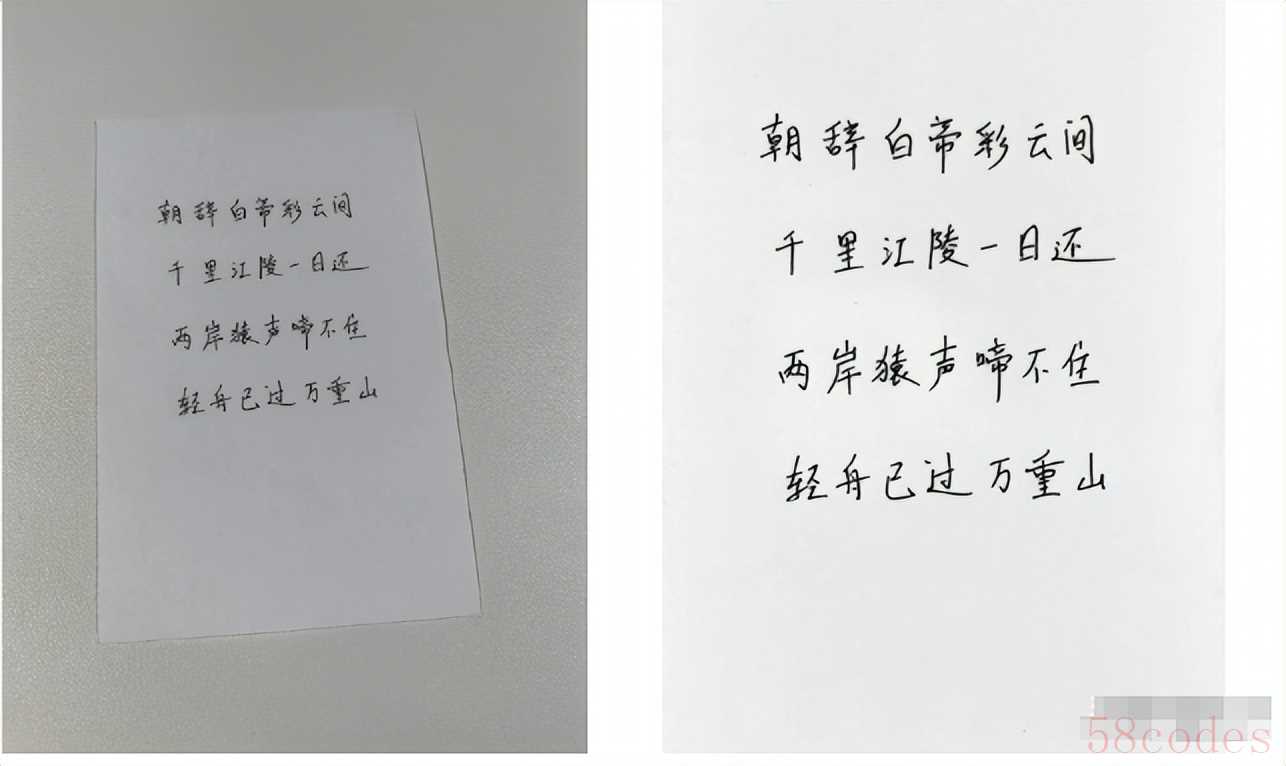 朝辞白帝彩云间
千里江陵一日还
两岸猿声啼不住
轻舟已过万重山
朝辞白帝彩云间
千里江陵一日还
两岸猿声啼不住
轻舟已过万重山
58codes